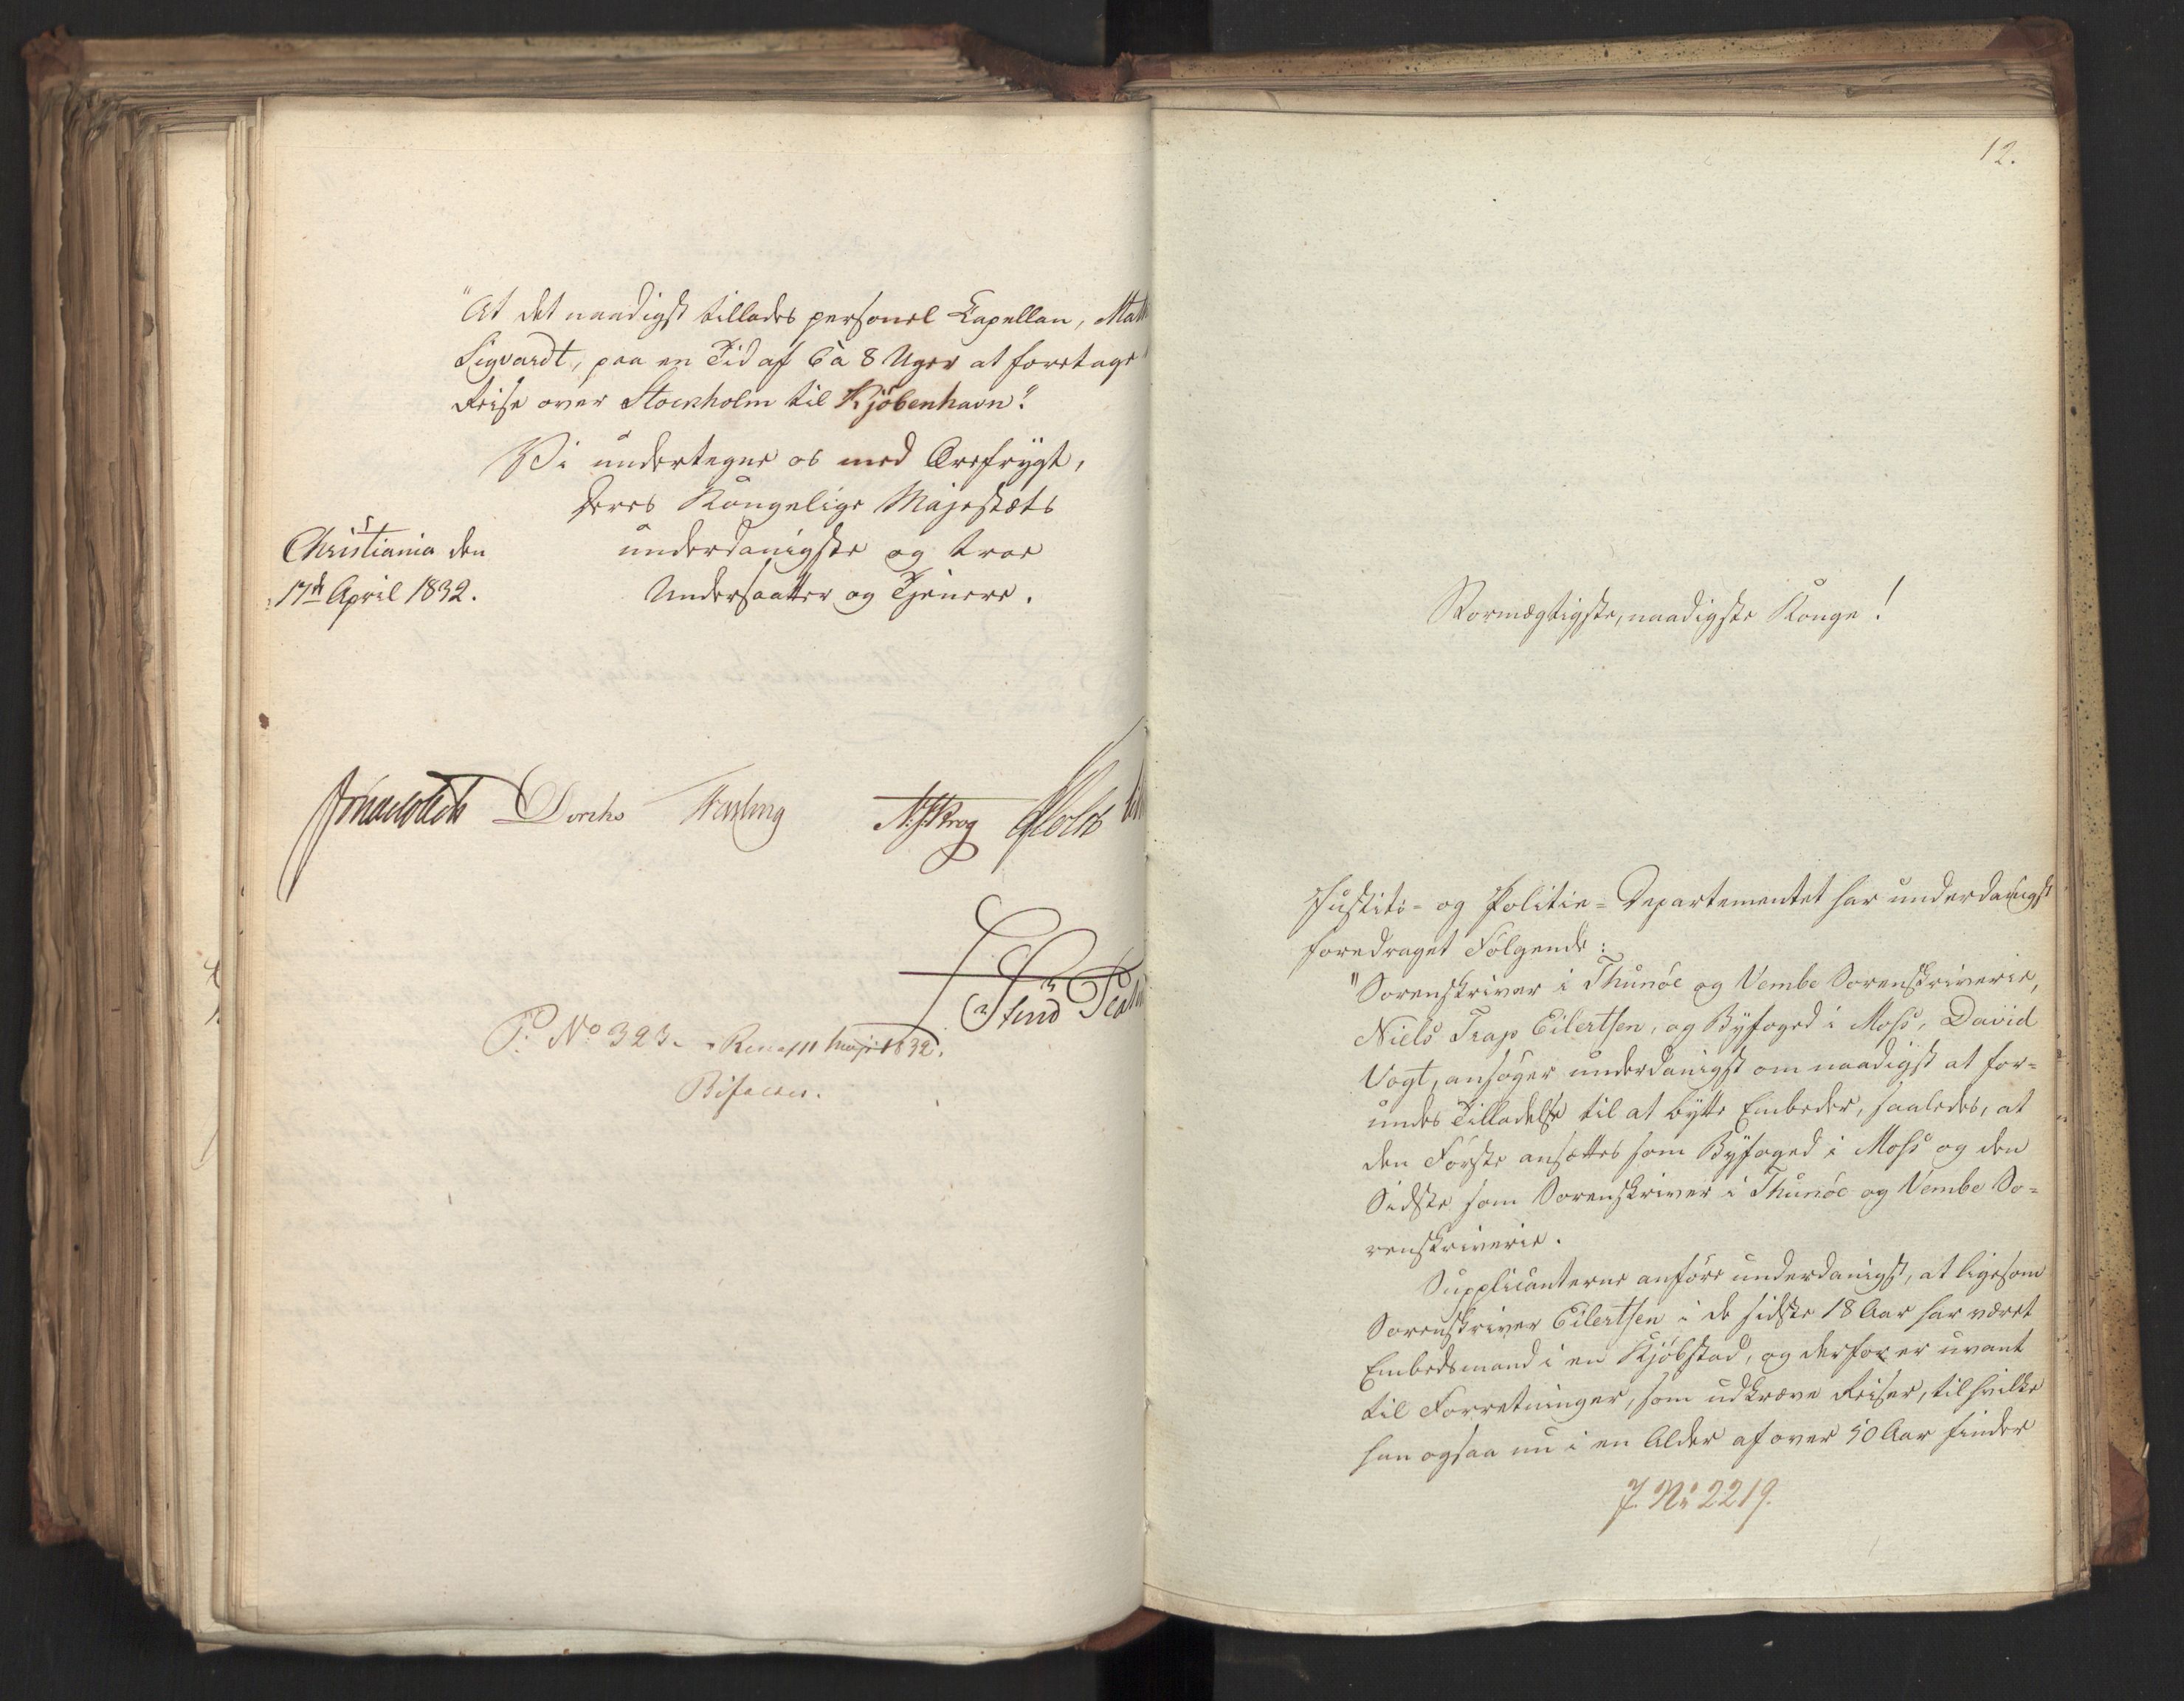 "At det naadigst tillades personel Capellan,
Sigvardt, paa en Tid af 6 à 8 Uger at foretage
Reise over Stockholm til Kjöbenhavn".
Vi undertegne os med Ærefrygt,
Deres Kongelige Majestæts
underdanigste og troe
Undersaatter og Tjenere.
Christiania den
17de April 1832.
Diriks Fasting N. J. Krog Holst
P. No 323. Maji 1832.
Bifaldes.
12.
Stormægtigste, naadigste Konge!
Justits- og Politie-Departementet har underdanigst
foredraget Fölgende:
"Sorenskriver i Thunöe og Vembe Sorenskriverie,
Niels Trap Eilertsen, og Byfoged i Moss, David
Vogt, ansöger underdanigst om naadigst at for-
undes Tilladelse til at bytte Embeder, saaledes, at
den Förste ansættes som Byfoged i Moss og den
Sidste som Sorenskriver i Thunöe og Vembe So-
renskriverie.
Supplicanterne anföre underdanigst, at ligesom
Sorenskriver Eilertsen i de sidste 18 Aar har været
Embedsmand i en Kjöbstad, og derfor er uvant
til Forretninger, som udkræve Reiser, til hvilke
han ogsaa nu i en Alder af over 50 Aar finder
J. No 2219.